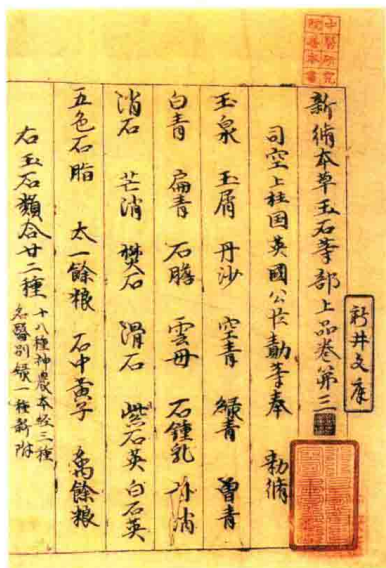 中醫研究
院善本書
新脩本草玉石等部上品卷第三
新井文庫
司空上柱国英國公臣勣等奉 勑脩
玉泉 玉屑 丹沙 空青 緑青 曽青
白青 扁青 石膽 雲母 石鍾乳 朴消
消石 芒消 礬石 滑石 紫石英 白石英
五色石脂 太一餘粮 石中黄子 禹餘粮
右玉石類合廿二種 十八種神農本经三種
名醫别録一種新附